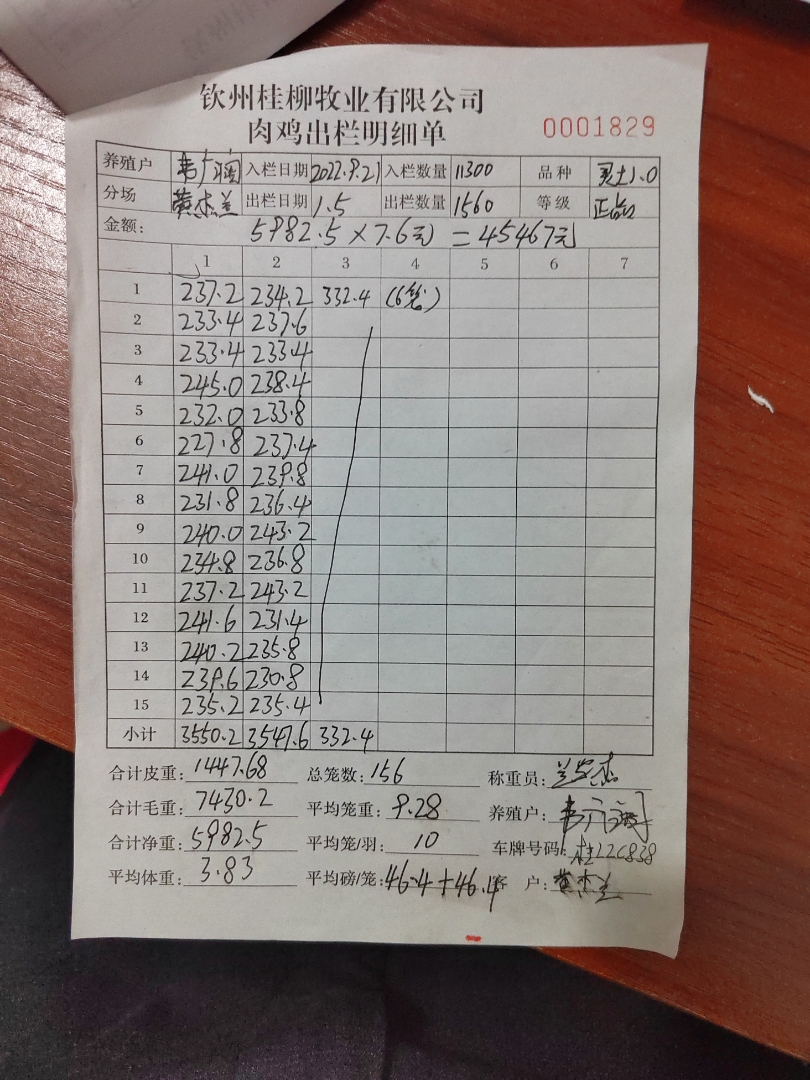 钦州桂柳牧业有限公司
肉鸡出栏明细单 0001829
养殖户 韦广润 入栏日期 2022.9.21 入栏数量 11300 品种
分场 黄杰兰 出栏日期 1.5 出栏数量 1560 等级 正品
金额: 5982.5×7.6元=45467元
1 2 3 4 5 6 7
1 237.2 234.2 332.4 (6笼)
2 233.4 237.6
3 233.4 233.4
4 245.0 238.4
5 232.0 233.8
6 227.8 237.4
7 241.0 239.8
8 231.8 236.4
9 240.0 243.2
10 234.8 236.8
11 237.2 243.2
12 241.6 231.4
13 240.2 235.8
14 239.6 230.8
15 235.2 235.4
小计 3550.2 3547.6 332.4
合计皮重: 1447.68 总笼数: 156 称重员:
合计毛重: 7430.2 平均笼重: 9.28 养殖户:
合计净重: 5982.5 平均笼/羽: 10 车牌号码: 桂22C838
平均体重: 3.83 平均磅/笼: 46.4+46.4 客户: 黄杰兰